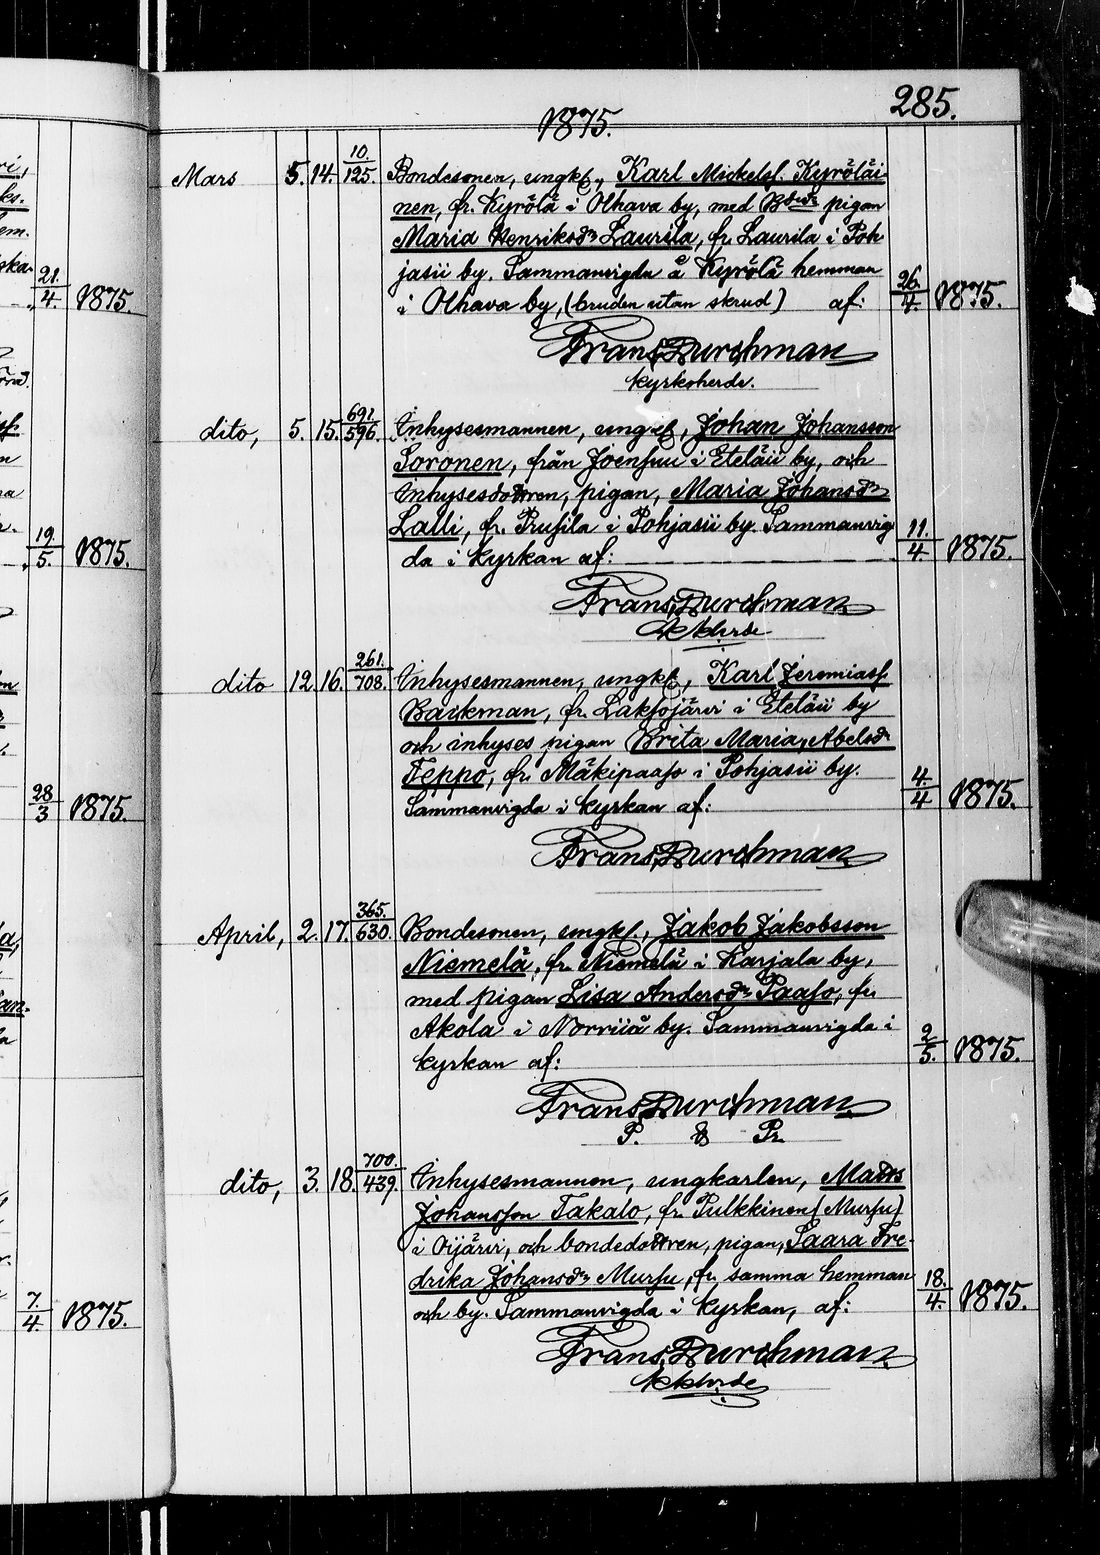 285.
1875.
Mars 5. 14. 10. 125. Bondesonen, ungk., Karl Mickelss. Kyröläi-
nen, fr. Kyrölä i Olhava by, med Bdedr pigan
Maria Henriksdr Laurila, fr. Laurila i Poh
jasii by. Sammanvigda å Kyrölä hemman
i Olhava by, (bruden utan skrud) af: 26. 4. 1875.
Frans Durchman
kyrkoherde.
dito, 5. 15. 691. 596. Inhysesmannen, ungk., Johan Johansson
Soronen, från Joensuu i Eteläii by, och
Inhysesdottren, pigan, Maria Johansdr
Lalli, fr. i Pohjasii by. Sammanvig
da i kyrkan af: 11. 4. 1875.
Frans Durchman
dito 12. 16. 261. 708. Inhysesmannen, ungk., Karl Jeremiass.
Backman, fr. Laksojärvi i Eteläii by
och inhyses pigan Brita Maria, Abelsdr
Teppo, fr. Mäkipaaso i Pohjasii by.
Sammanvigda i kyrkan af: 4. 4. 1875.
Frans Durchman
April, 2. 17. 365. 630. Bondesonen, ungk., Jakob Jakobsson
Niemelä, fr. Niemelä i Karjala by,
med pigan Lisa Andersdr Paaso, fr.
Akola i Norriiå by. Sammanvigda i
kyrkan af: 2. 5. 1875.
Frans Durchman.
P. & Pr.
dito, 3. 18. 700. 439. Inhysesmannen, ungkarlen, Matts
Johansson Takalo, fr. Pulkkinen (Mursu)
i Oijärvi, och bondedottren, pigan, Saara Fre-
drika Johansdr Mursu, fr. samma hemman
och by. Sammanvigda i kyrkan, af: 18. 4. 1875.
Frans Durchman.
21. 4. 1875.
19. 5. 1875.
28 3 1875.
7. 4. 1875.